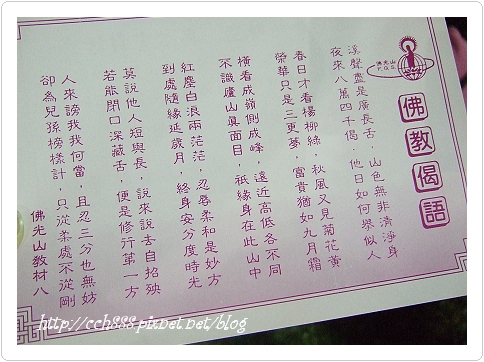 佛光山
F.G.S.
佛教偈語
溪聲盡是廣長舌，山色無非清淨身
夜來八萬四千偈，他日如何舉似人
春日才看楊柳綠，秋風又見菊花黃
榮華只是三更夢，富貴猶如九月霜
橫看成嶺側成峰，遠近高低各不同
不識廬山真面目，祇緣身在此山中
紅塵白浪兩茫茫，忍辱柔和是妙方
到處隨緣延歲月，終身安分度時光
莫說他人短與長，說來說去自招殃
若能閉口深藏舌，便是修行第一方
人來謗我我何當，且忍三分也無妨
卻為兒孫榜樣計，只從柔處不從剛
佛光山教材八
http://cch888.pixnet.net/blog